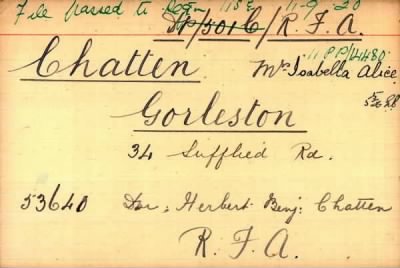 File passed to 11-9-20
D/501C/R.F.A.
11 PP/4480
Chatten Mrs Isabella Alice
Gorleston
34 Suffield Rd.
53640 Dvr: Herbert Benj: Chatten
R.F.A.